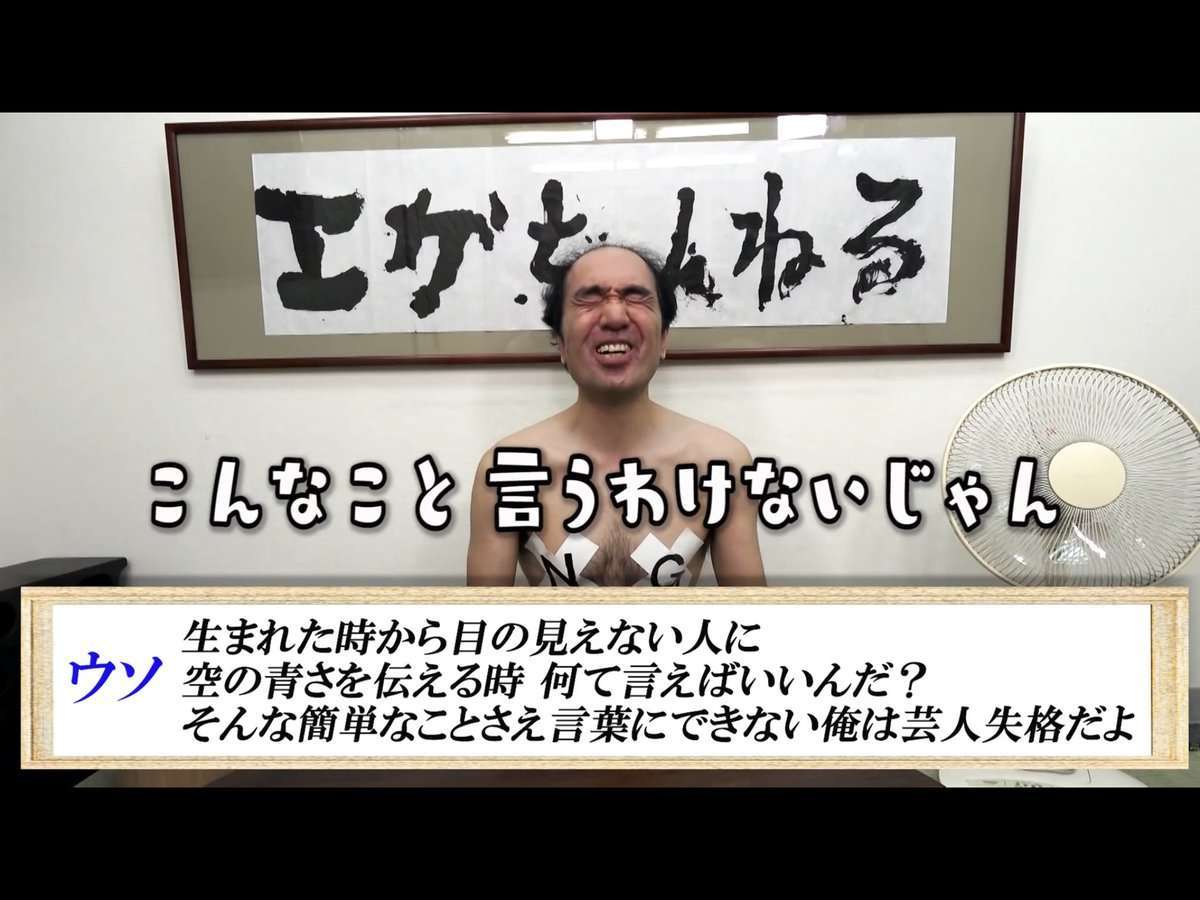 エガちゃんねる
こんなこと 言うわけないじゃん
N G
ウソ
生まれた時から目の見えない人に
空の青さを伝える時 何て言えばいいんだ?
そんな簡単なことさえ言葉にできない俺は芸人失格だよ